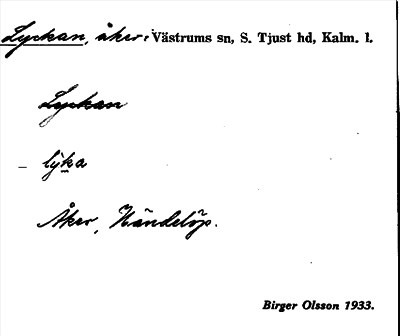 Lyckan, åker, Västrums sn, S. Tjust hd, Kalm. l.
Lyckan
– lỳka
Åker, Händelöp.
Birger Olsson 1933.